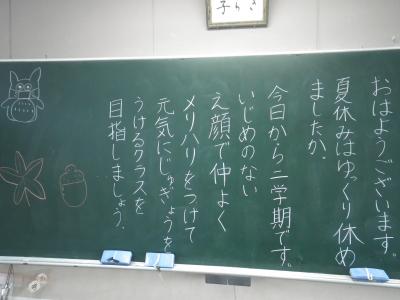 おはようございます。
夏休みはゆっくり休め
ましたか。
今日から二学期です。
いじめのない
え顔で仲よく
メリハリをつけて
元気にじゅぎょうを
うけるクラスを
目指しましょう。